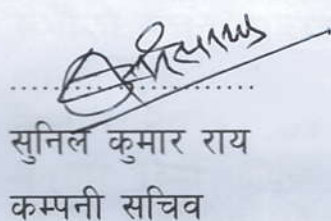 ....................................
सुनिल कुमार राय
कम्पनी सचिव